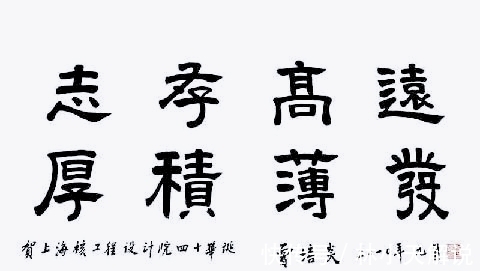 志存高遠
厚積薄發
賀上海核工程設計院四十華誕 曾培炎